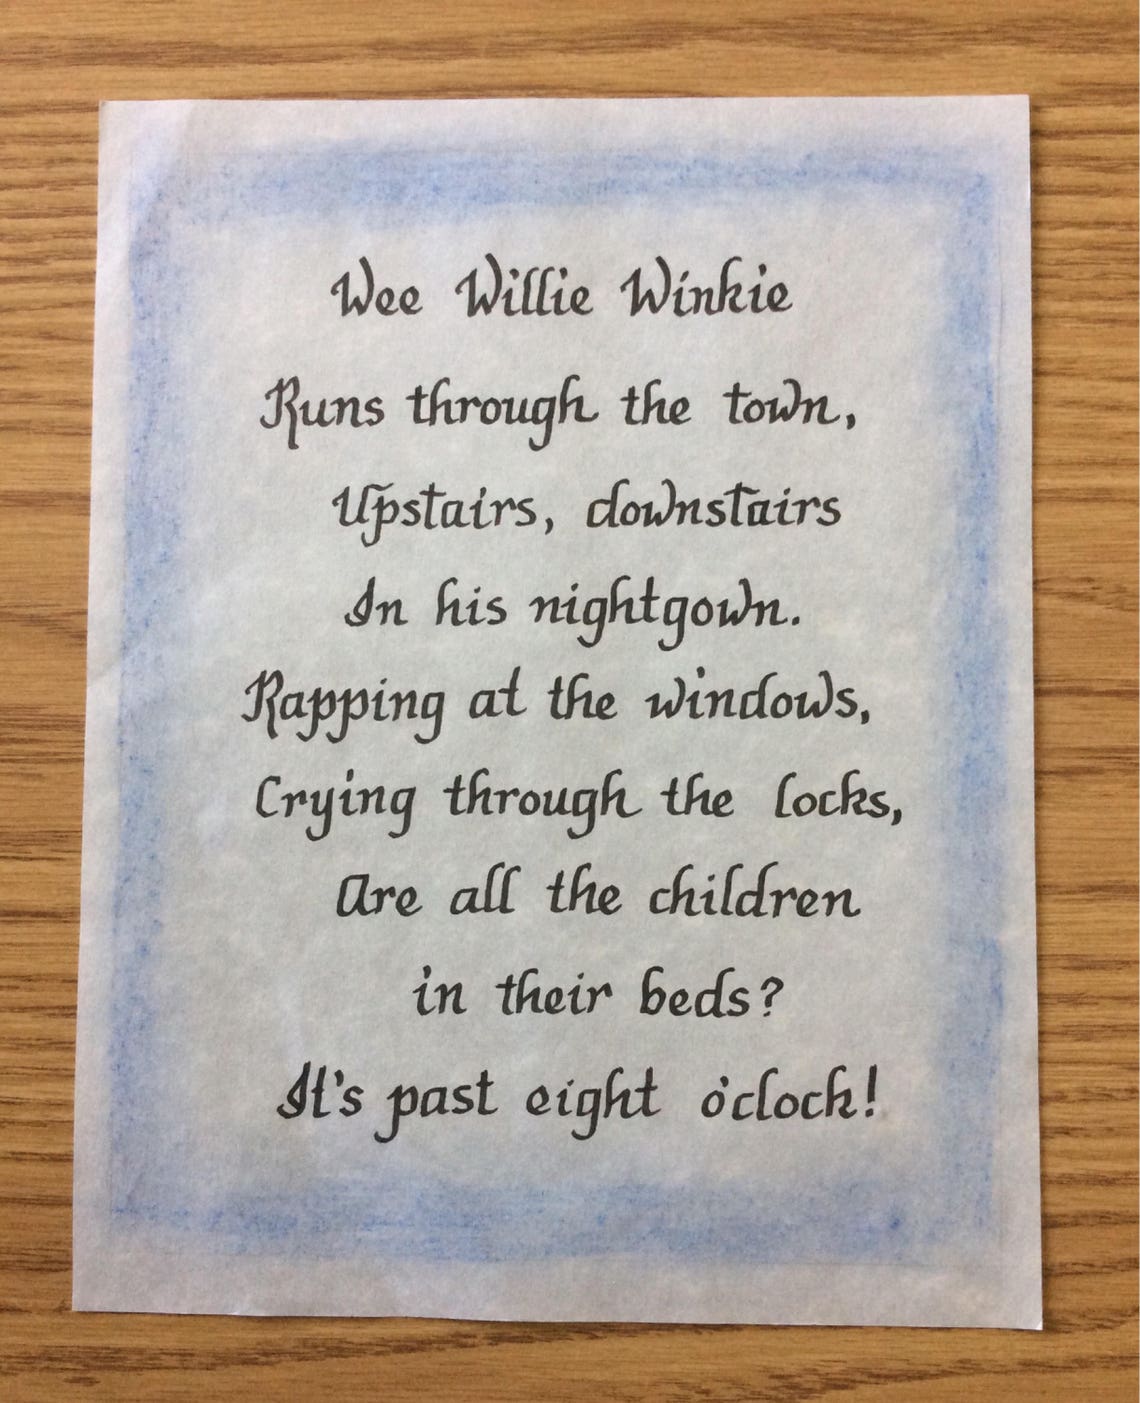 Wee Willie Winkie
Runs through the town,
Upstairs, downstairs
In his nightgown.
Rapping at the windows,
Crying through the locks,
Are all the children
in their beds?
It's past eight o'clock!